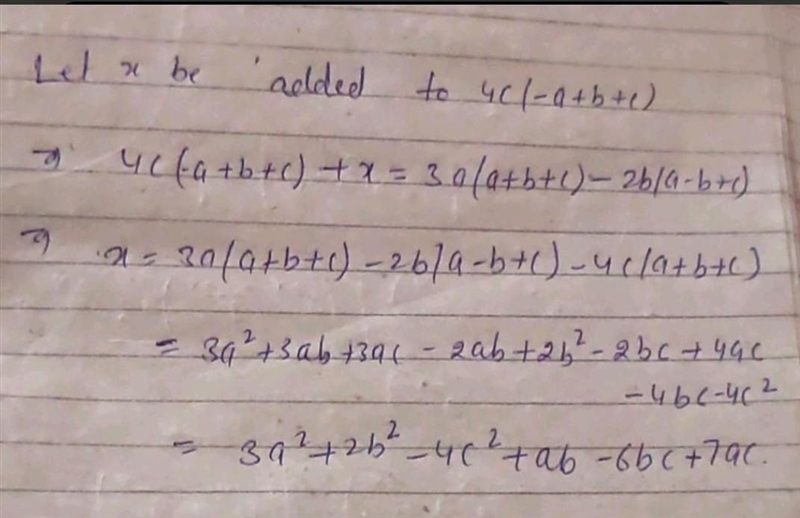 Let x be added to 4c(-a+b+c)
⇒ 4c(-a+b+c) + x = 3a(a+b+c) - 2b(a-b+c)
⇒ x = 3a(a+b+c) - 2b(a-b+c) - 4c(a+b+c)
= 3a²+3ab+3ac - 2ab+2b²-2bc+4ac
-4bc-4c²
= 3a²+2b²-4c²+ab-6bc+7ac.